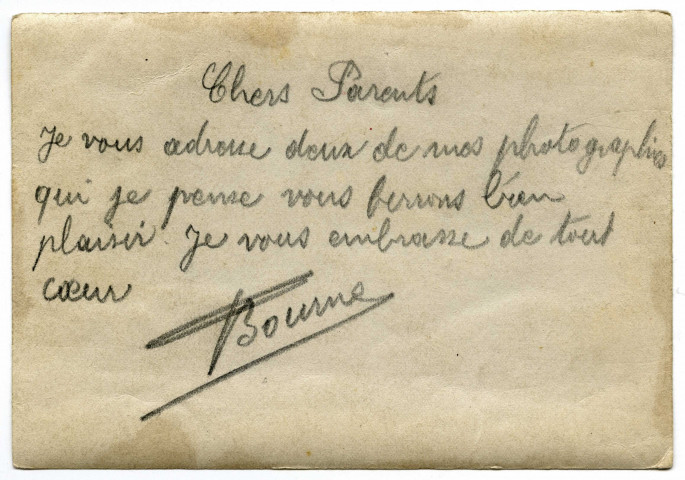 Chers Parents
Je vous adresse deux de mes photographies
qui je pense vous ferrons bien
plaisir. Je vous embrasse de tout
cœur
Bourne